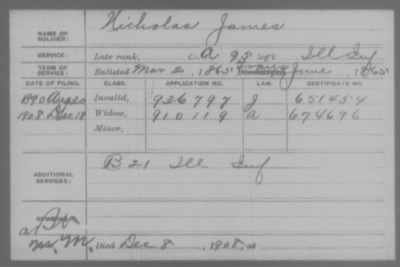 NAME OF SOLDIER: Nicholas James
SERVICE: Late rank, Co. A 95 Reg't Ill Inf
TERM OF SERVICE: Enlisted Mar 2, 1865 Trans June, 1865
DATE OF FILING. CLASS. APPLICATION NO. LAW. CERTIFICATE NO.
1890 Aug 20 Invalid, 936797 J 651454
1908 Dec 18 Widow, 910119 a 674696
Minor,
ADDITIONAL SERVICES: B 21 Ill Inf
REMARKS:
Died Dec 8, 1908, at